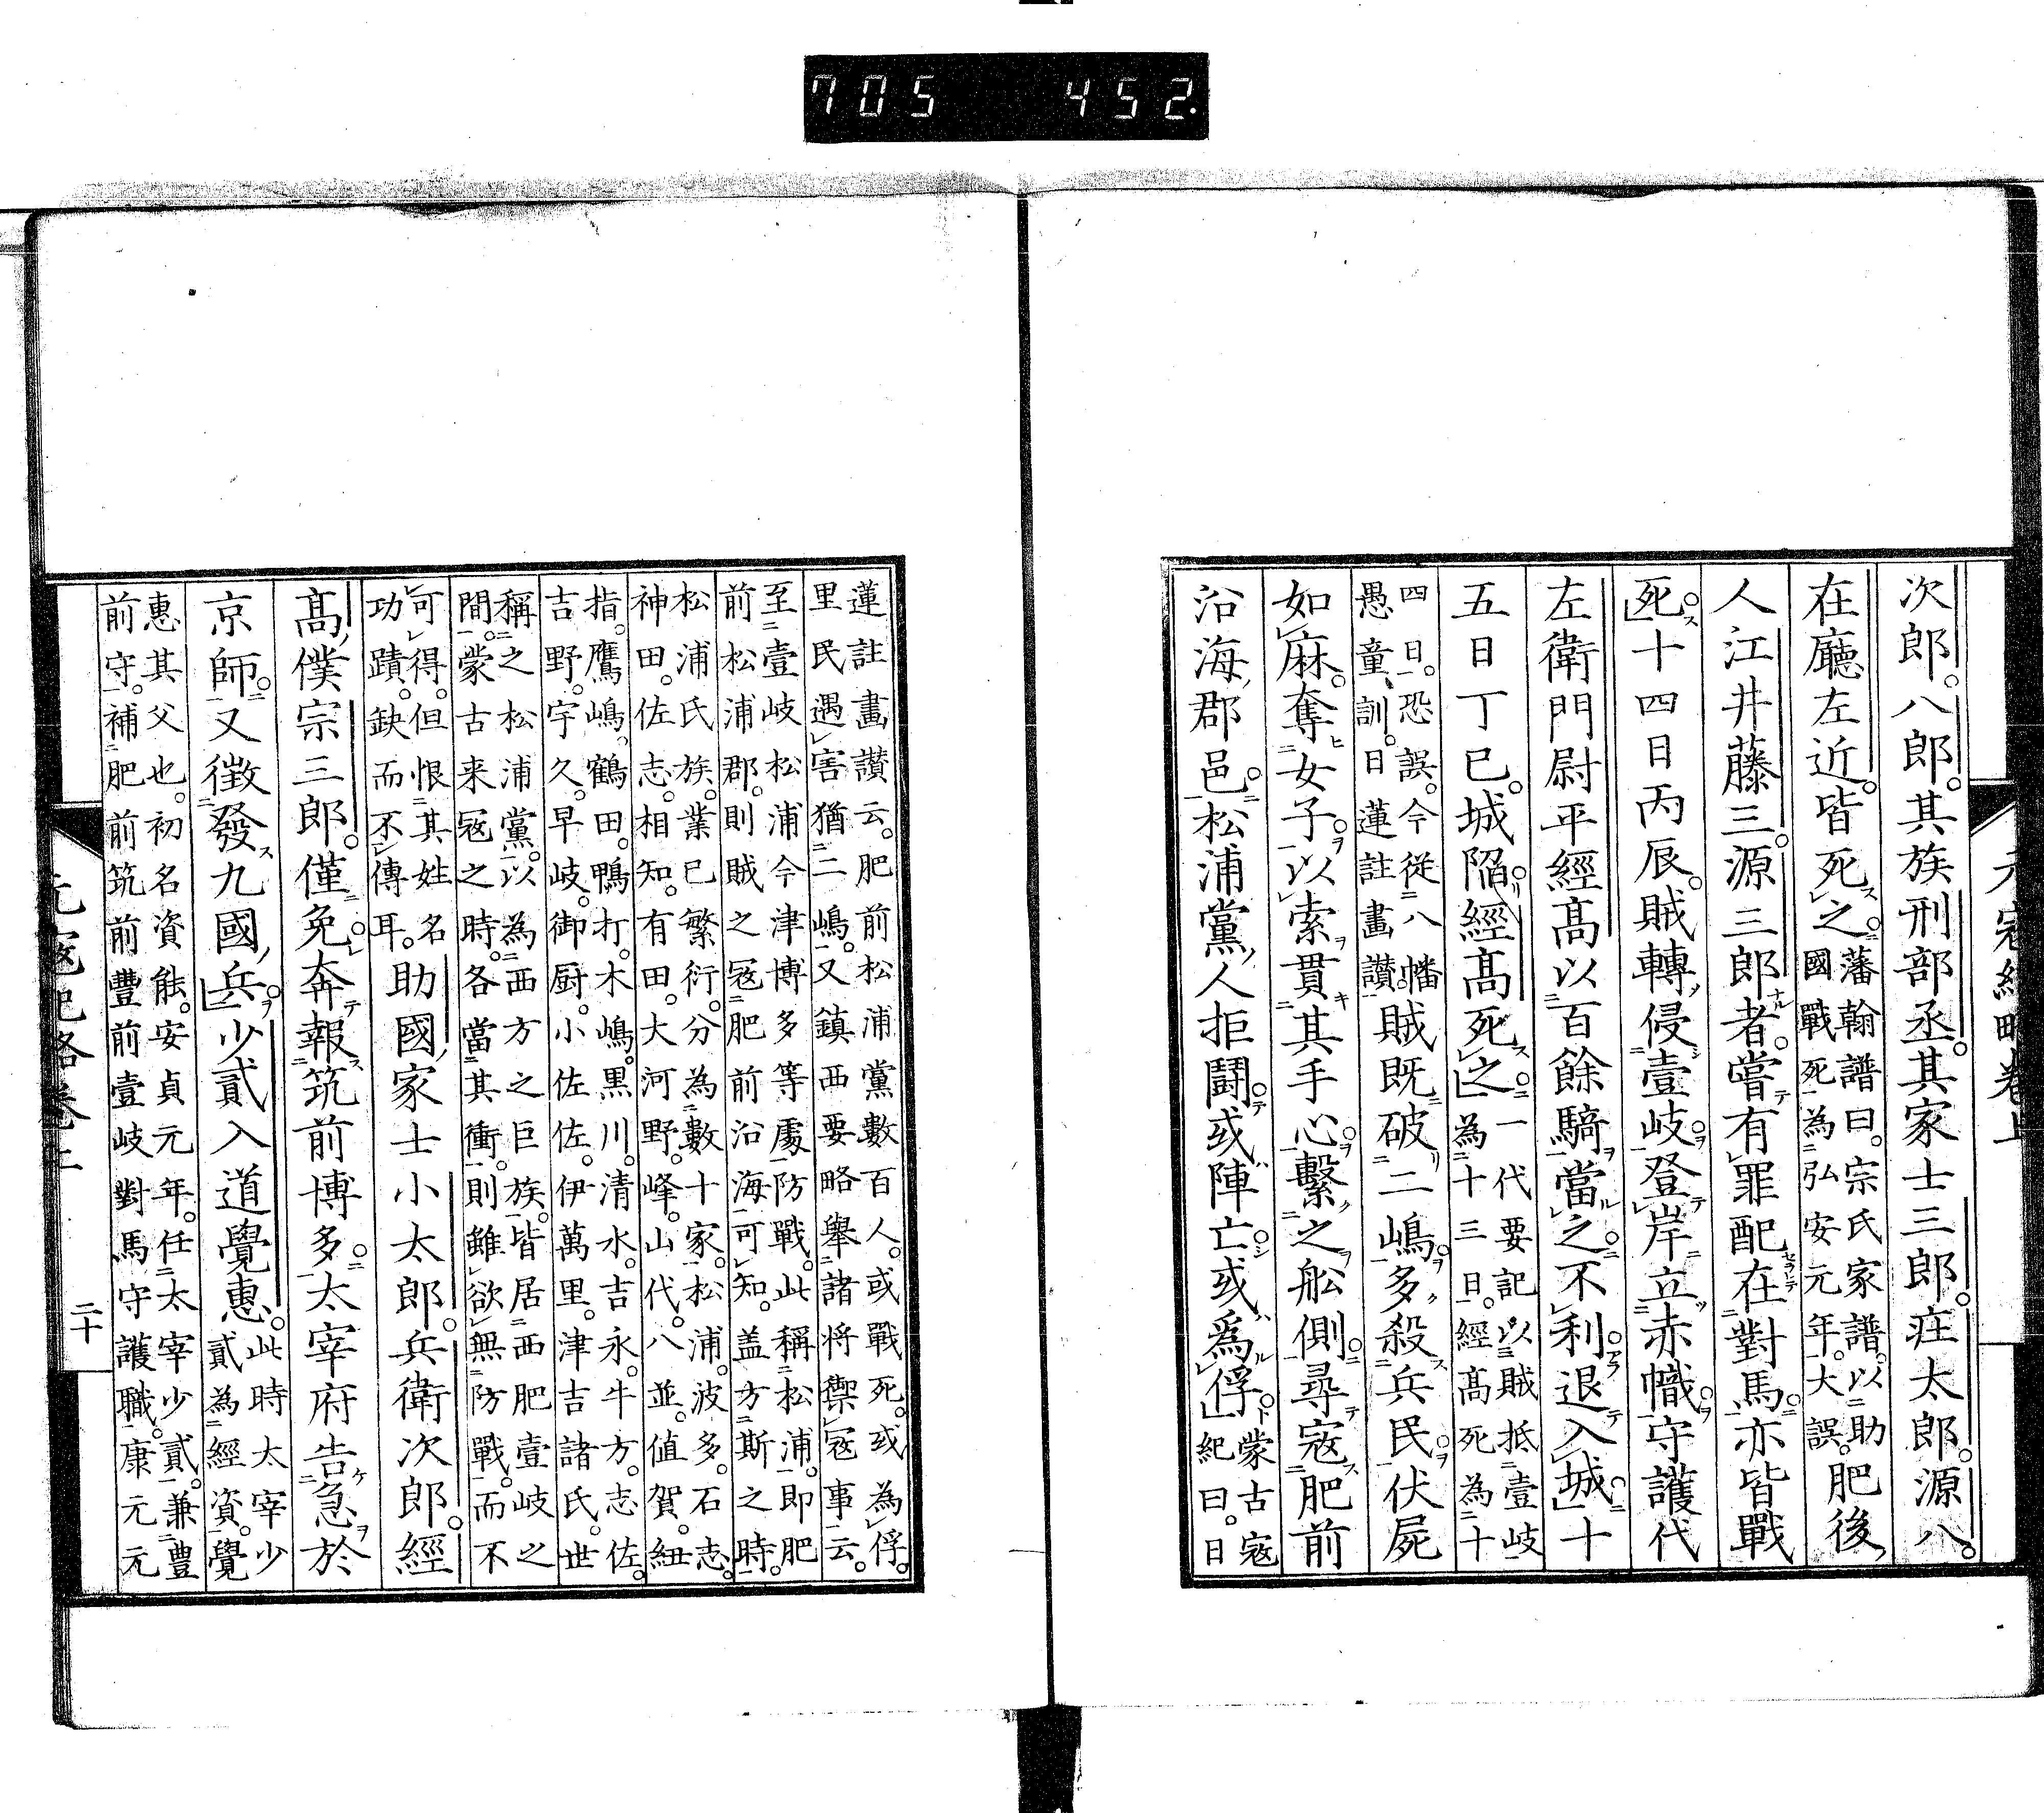 705 452.
元寇紀略卷上
次郎。八郎。其族刑部丞。其家士三郎。疘太郎。源八。
在廳左近。皆死之。藩翰譜曰。宗氏家譜。以助
國戰死為弘安元年。大誤。肥後
人江井藤三。源三郎者。嘗有罪配在對馬。亦皆戰
死。十四日丙辰。賊轉侵壹岐。登岸立赤幟。守護代
左衛門尉平經高以百餘騎當之。不利退入城。十
五日丁巳。城陷。經高死之。一代要記以賊抵壹岐
為十三日。經高死為十
四日。恐誤。今從八幡
愚童訓。日蓮註畫讃。賊既破二嶋。多殺兵民。伏屍
如麻。奪女子。以索貫其手心。繫之舩側。尋寇肥前
沿海郡邑。松浦黨人拒鬪。或陣亡。或爲俘。蒙古寇
紀曰。日
蓮註畫讃云。肥前松浦黨數百人。或戰死。或為俘。
里民遇害猶二嶋。又鎮西要略舉諸将禦寇事云。
至壹岐松浦今津博多等處防戰。此稱松浦。即肥
前松浦郡。則賊之寇肥前沿海可知。盖方斯之時。
松浦氏族。業已繁衍。分為數十家。松浦。波多。石志。
神田。佐志。相知。有田。大河野。峰。山代。八並。値賀。紐
指。鷹嶋。鶴田。鴨打。木嶋。黒川。清水。吉永。牛方。志佐。
吉野。宇久。早岐。御厨。小佐佐。伊萬里。津吉諸氏。世
稱之松浦黨。以為西方之巨族。皆居西肥壹岐之
間。蒙古来寇之時。各當其衝。則雖欲無防戰。而不
可得。但恨其姓名
功蹟。缺而不傳耳。助國家士小太郎。兵衛次郎。經
高僕宗三郎。僅免奔報筑前博多。太宰府告急於
京師。又徴發九國兵。少貳入道覺惠。此時太宰少
貳為經資。覺
惠其父也。初名資能。安貞元年。任太宰少貳。兼豊
前守。補肥前筑前豐前壹岐對馬守護職。康元元
元寇紀略卷上 二十